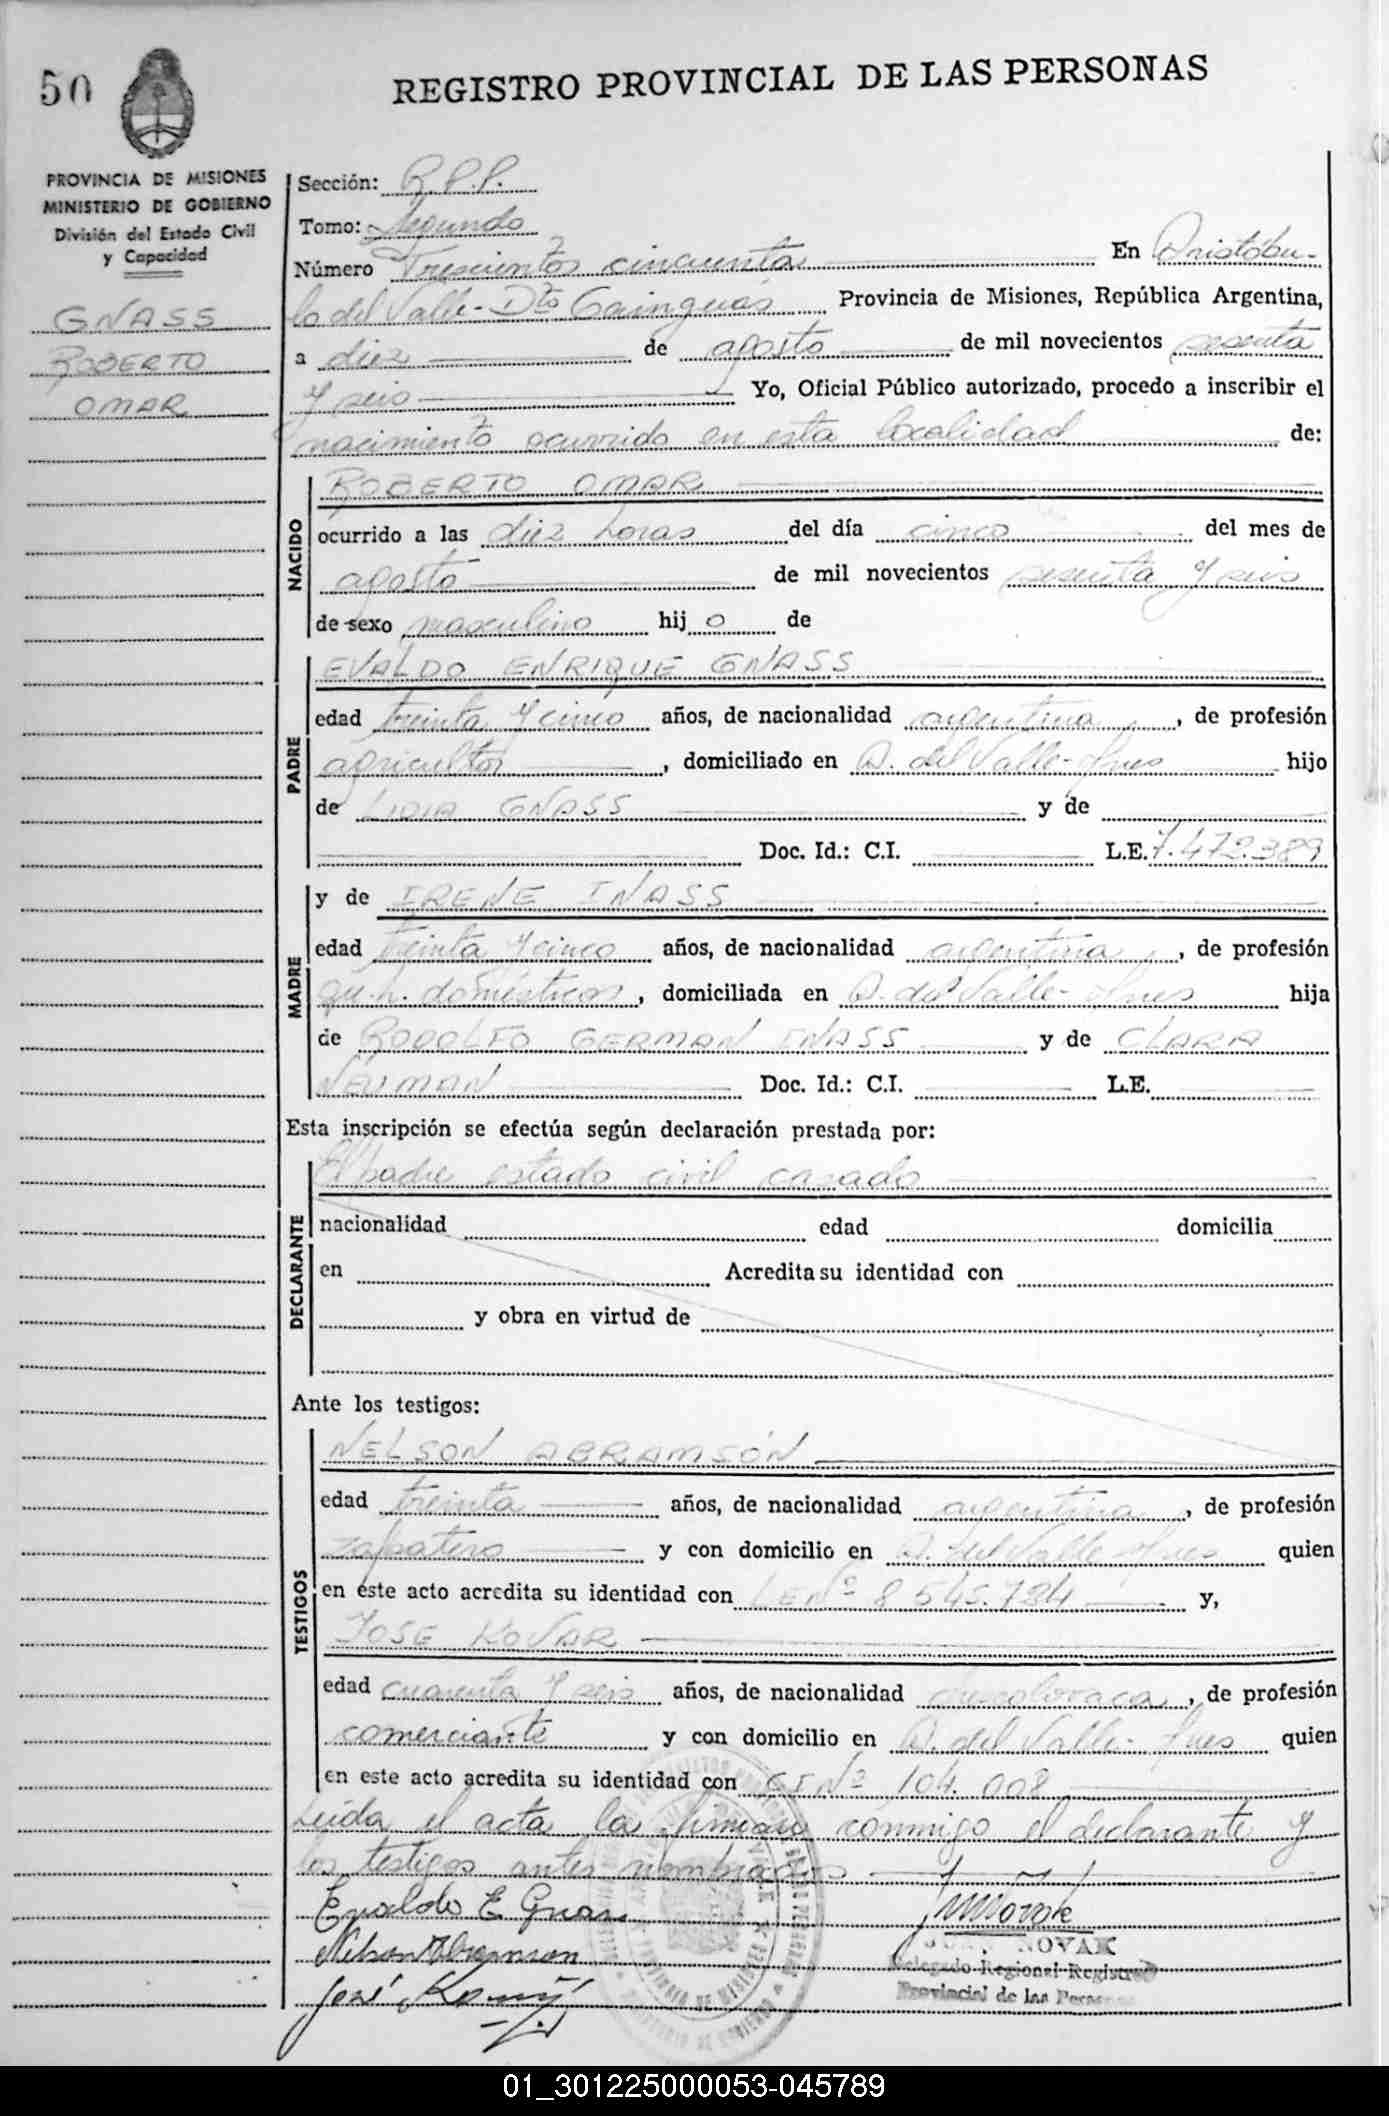 50
REGISTRO PROVINCIAL DE LAS PERSONAS
PROVINCIA DE MISIONES
MINISTERIO DE GOBIERNO
División del Estado Civil
y Capacidad
GNASS
ROBERTO
OMAR
Sección: R.P.P.
Tomo: Segundo
Número Trescientos cincuenta En Aristóbu-
lo del Valle - Dto Cainguás Provincia de Misiones, República Argentina,
a diez de agosto de mil novecientos sesenta
y seis Yo, Oficial Público autorizado, procedo a inscribir el
nacimiento ocurrido en esta localidad de:
NACIDO
ROBERTO OMAR
ocurrido a las diez horas del día cinco del mes de
agosto de mil novecientos sesenta y seis
de sexo masculino hij o de
PADRE
EVALDO ENRIQUE GNASS
edad treinta y cinco años, de nacionalidad argentina, de profesión
agricultor, domiciliado en A. del Valle - Mnes hijo
de LIDIA GNASS y de
Doc. Id.: C.I. L.E. 7.472.389
MADRE
y de IRENE INASS
edad treinta y cinco años, de nacionalidad argentina, de profesión
qu.h. domésticos, domiciliada en A. del Valle - Mnes hija
de RODOLFO GERMAN INASS y de CLARA
NEUMAN Doc. Id.: C.I. L.E.
Esta inscripción se efectúa según declaración prestada por:
DECLARANTE
El padre estado civil casado
nacionalidad edad domicilia
en Acredita su identidad con
y obra en virtud de
Ante los testigos:
TESTIGOS
NELSON ABRAMSÓN
edad treinta años, de nacionalidad argentina, de profesión
zapatero y con domicilio en A. del Valle Mnes quien
en este acto acredita su identidad con LE Nº 8.545.784 y,
JOSE KOVAR
edad cuarenta y seis años, de nacionalidad checoslovaca, de profesión
comerciante y con domicilio en A. del Valle - Mnes quien
en este acto acredita su identidad con CI Nº 104.008
Leída el acta la firman conmigo el declarante y
los testigos antes nombrados
Evaldo E Gnass
Nelson Abramson
José
NOVAK
Delegado Regional Registro
Provincial de las Personas
01_301225000053-045789